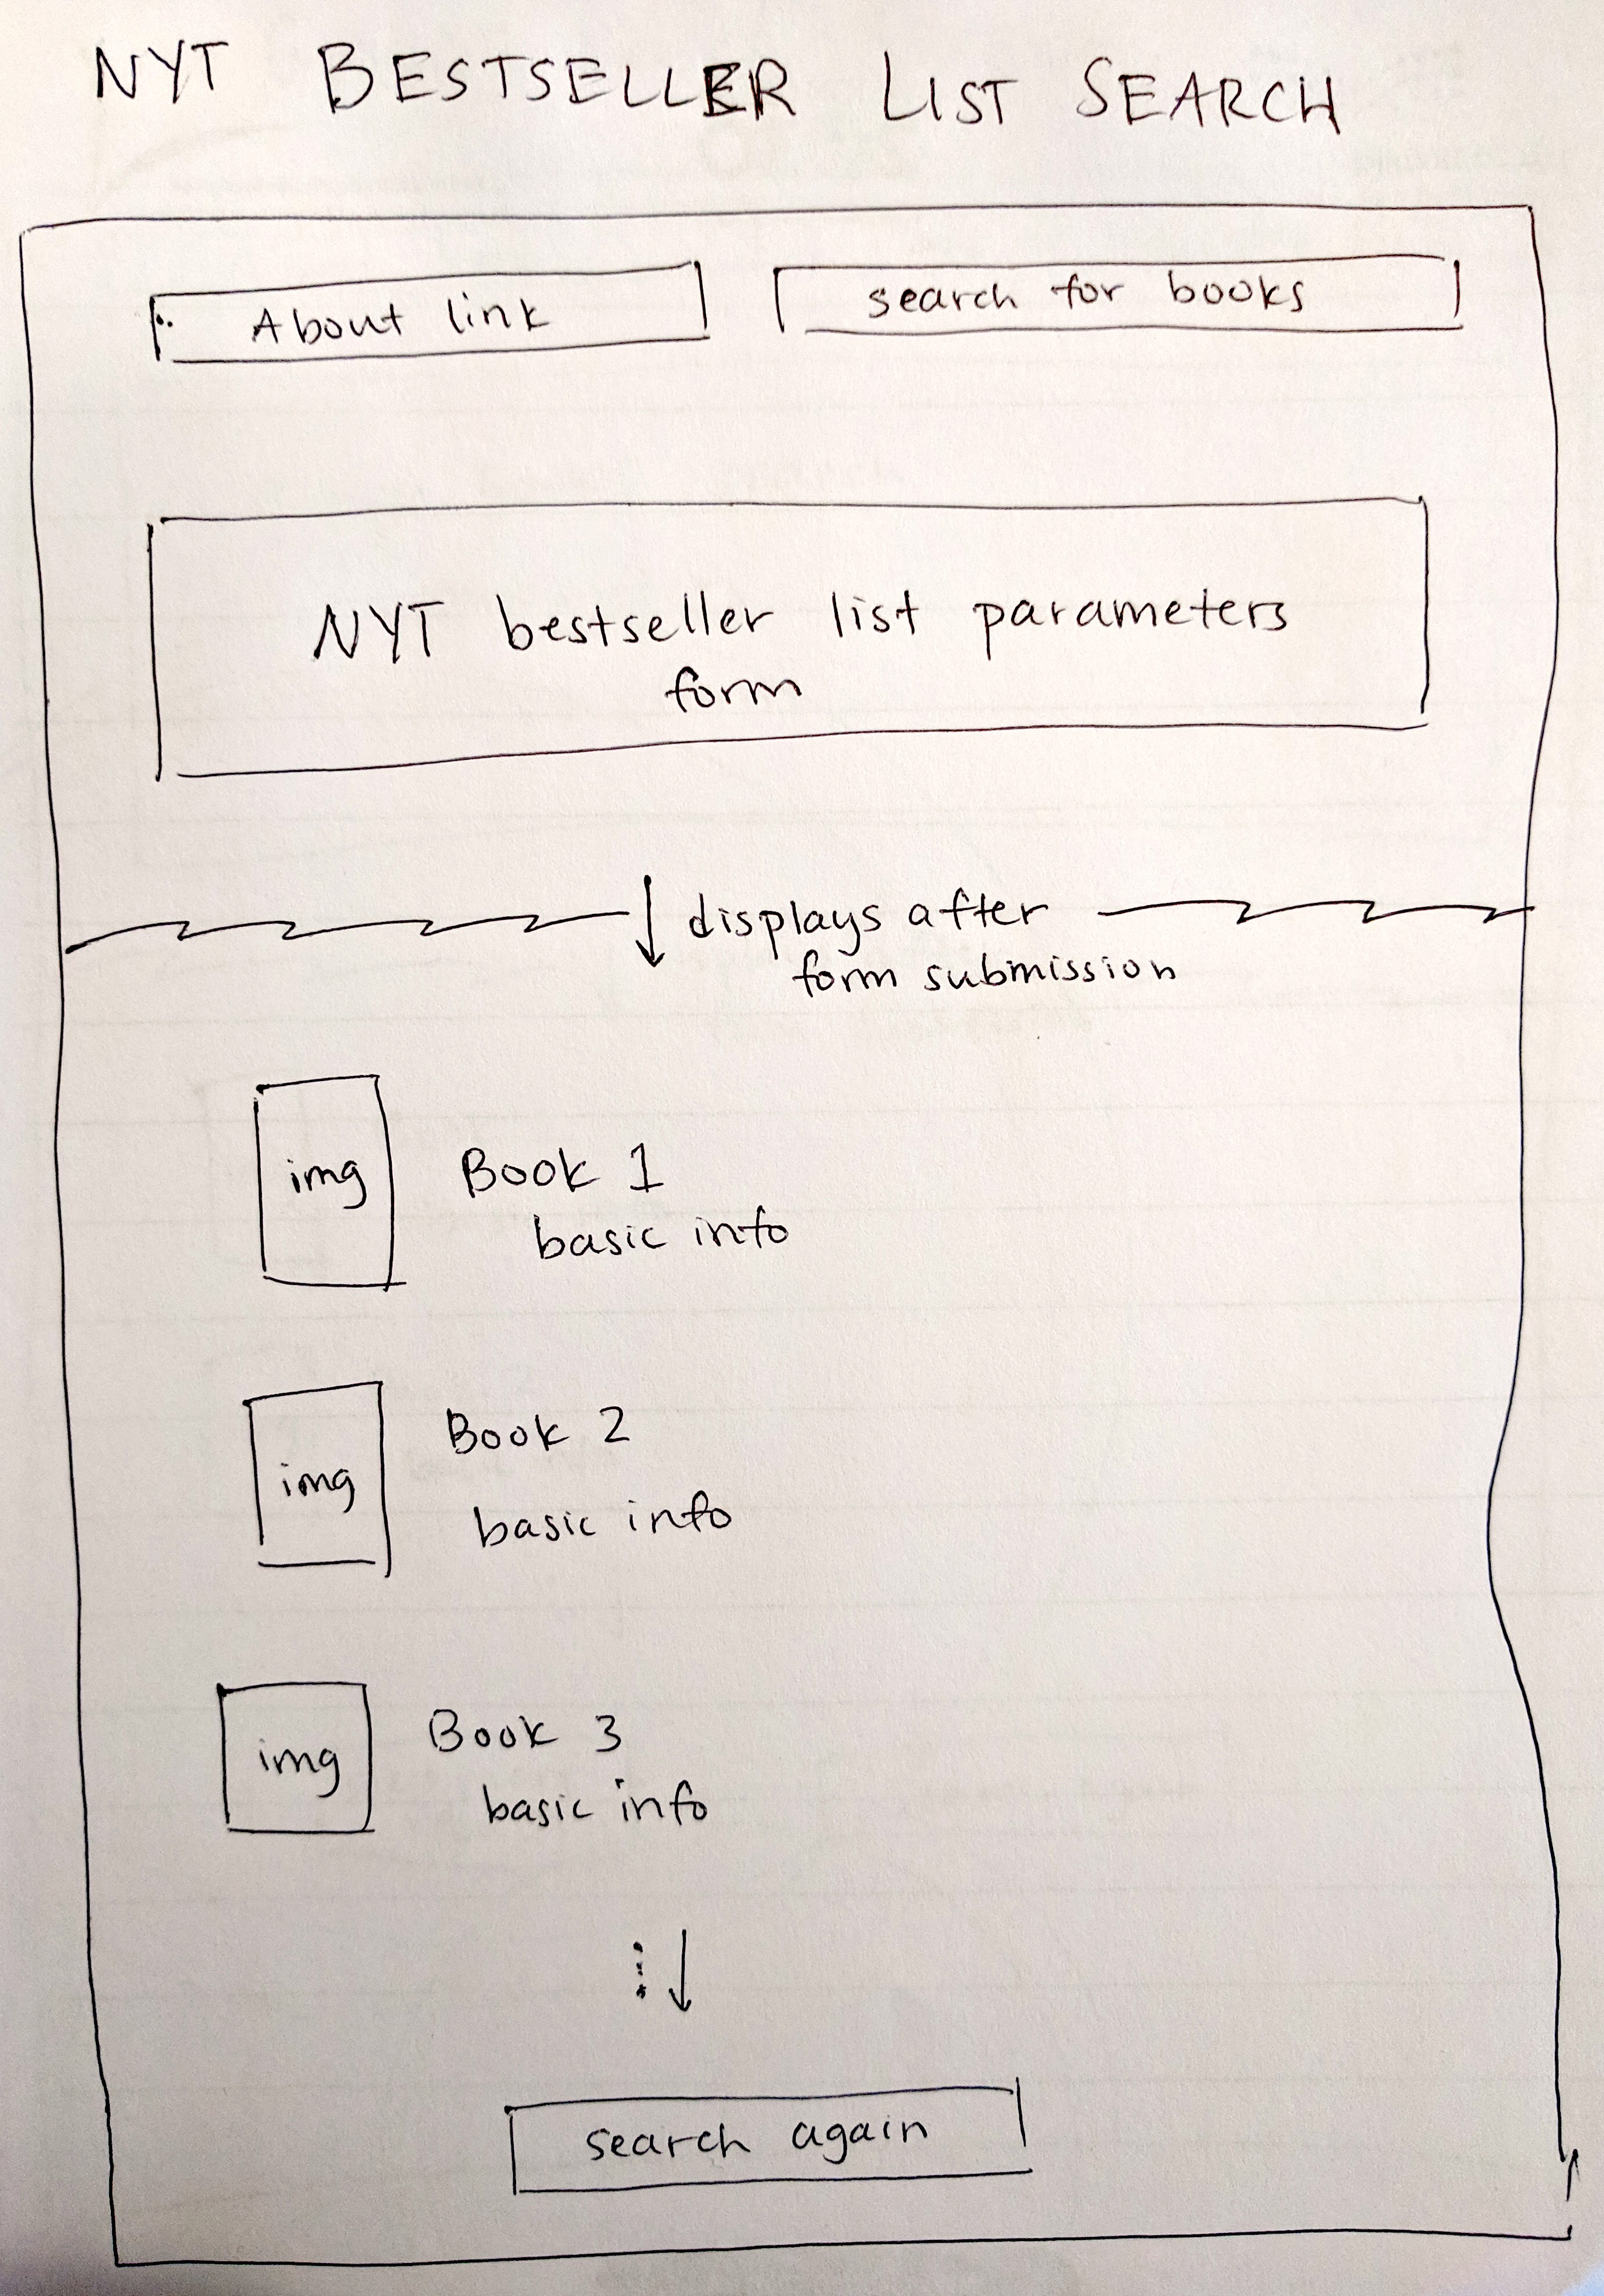 NYT BESTSELLER LIST SEARCH
About link
search for books
NYT bestseller list parameters
form
displays after
form submission
img
Book 1
basic info
img
Book 2
basic info
img
Book 3
basic info
search again